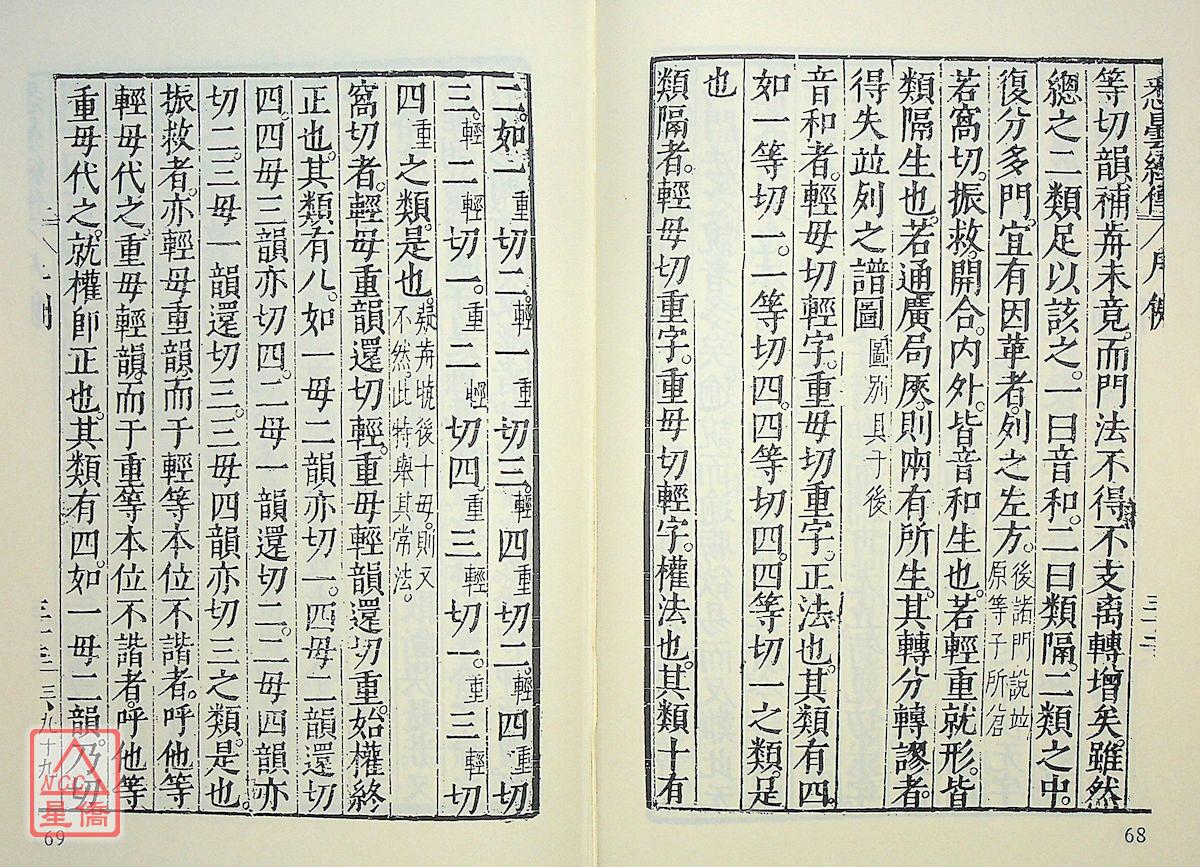 悉曇經傳
等切韻補葊未竟。而門法不得不支离轉增矣。雖然
總之二類足以該之。一曰音和。二曰類隔。二類之中。
復分多門。宜有因革者。列之左方。後諸門說竝原等子所仓
若窩切。振救。開合。内外。皆音和生也。若輕重就形。皆
類隔生也。若通廣局陿。則兩有所生。其轉分轉謬者。
得失竝列之譜圖圖別具于後
音和者。輕毋切輕字。重毋切重字。正法也。其類有四。
如一等切一。一等切四。四等切四。四等切一之類。是
也
類隔者。輕毋切重字。重毋切輕字。權法也。其類十有
68
二。如一重切二。輕一重切三。輕四重切二。輕四重切
三。輕二輕切一。重二輕切四。重三輕切一。重三輕切
四。重之類。是也。疑葊號後十毋。則又不然。此特舉其常法。
窩切者。輕毋重韻還切輕。重毋輕韻還切重。始權終
正也。其類有八。如一毋二韻亦切一。四毋二韻還切
四。四毋三韻亦切四。二毋一韻還切二。二毋四韻亦
切二。三毋一韻還切三。三毋四韻亦切三之類。是也。
振救者。亦輕毋重韻。而于輕等本位不諧者。呼他等
輕毋代之。重毋輕韻。而于重等本位不諧者。呼他等
重毋代之。就權即正也。其類有四。如一毋二韻。乃切
69
NCC
星僑